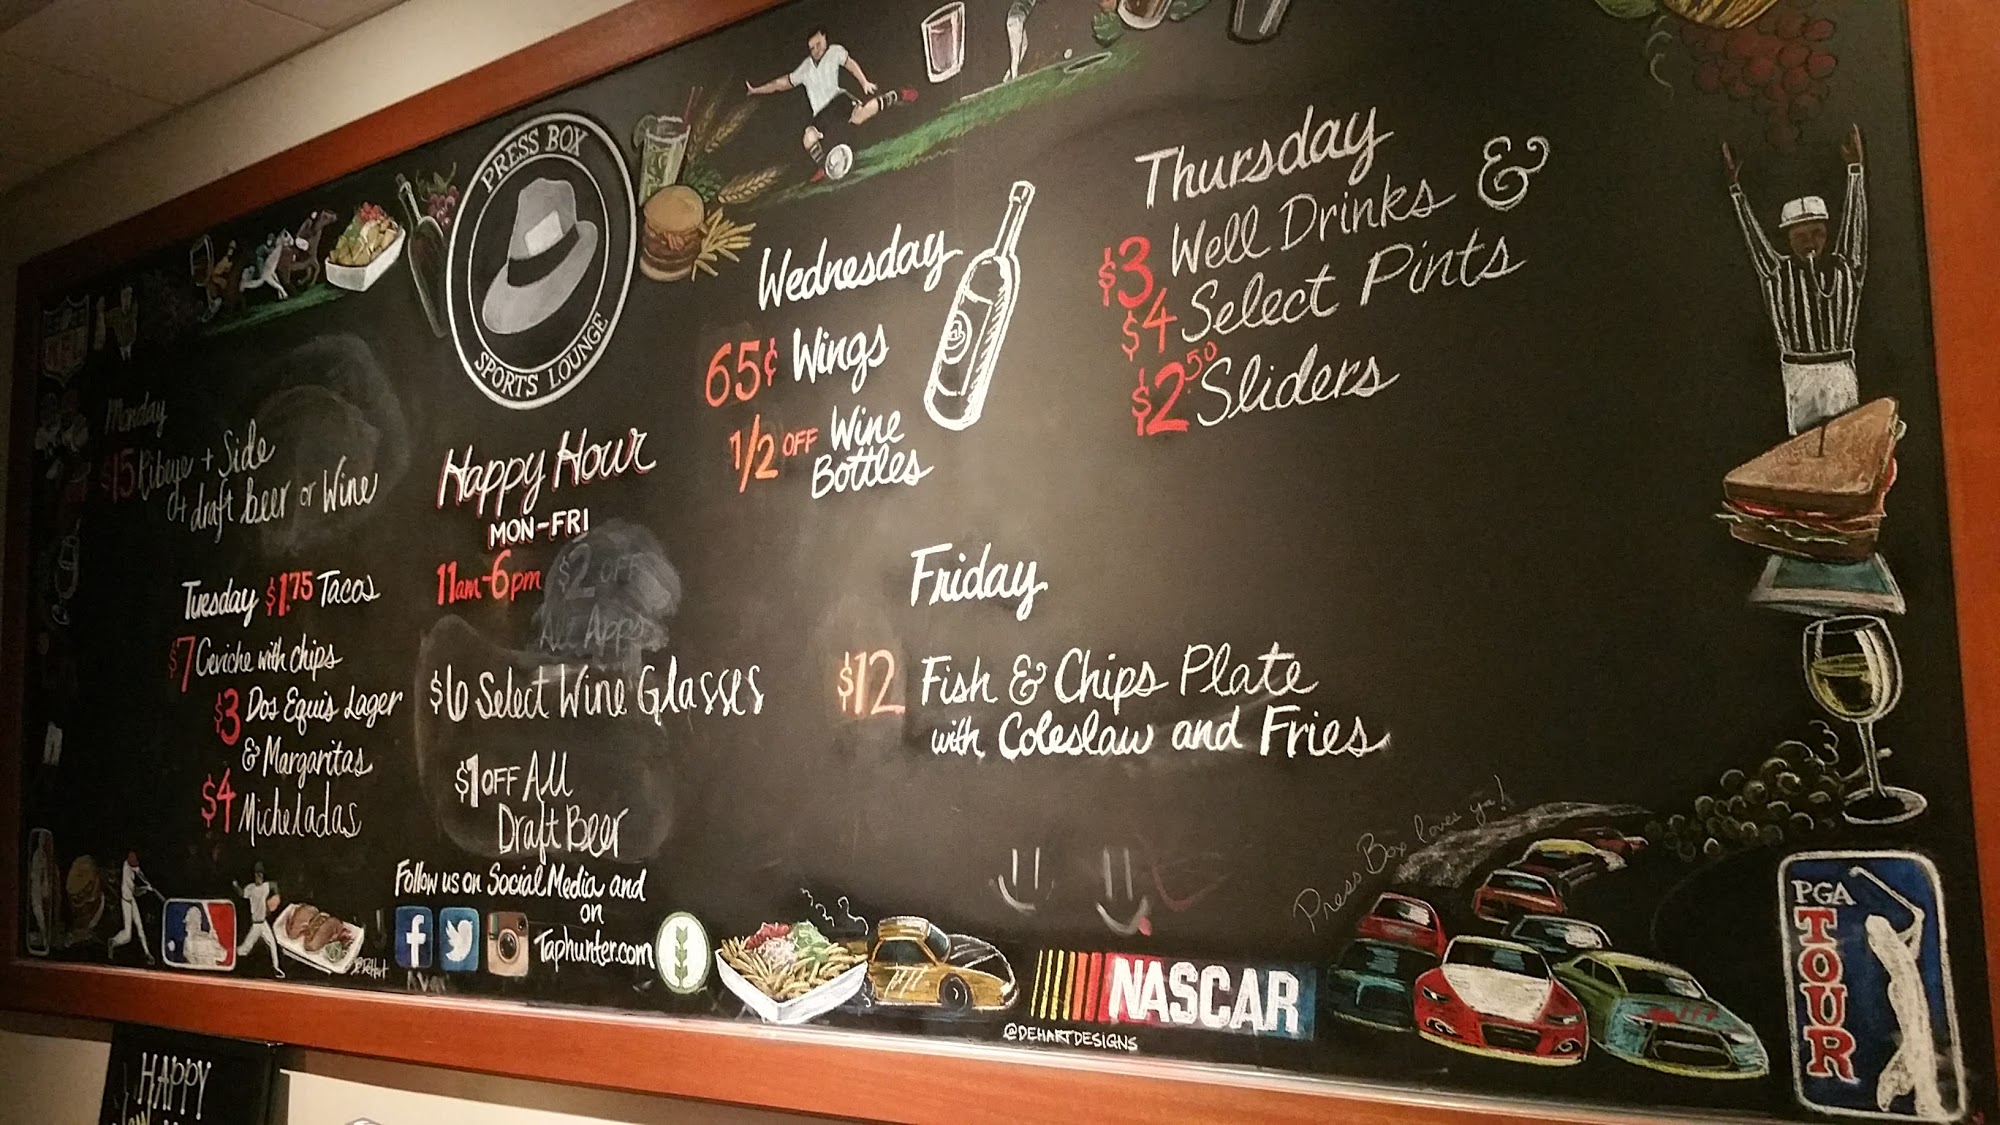 PRESS BOX
SPORTS LOUNGE
NFL
Monday
$15 Ribeye + Side
+ draft beer or Wine
Tuesday $1.75 Tacos
$7 Ceviche with chips
$3 Dos Equis Lager
& Margaritas
$4 Micheladas
Happy Hour
MON-FRI
11am-6pm
$2 OFF
All Apps
$6 Select Wine Glasses
$1 OFF All
Draft Beer
Follow us on Social Media and
on
Taphunter.com
Wednesday
65¢ Wings
1/2 OFF Wine
Bottles
Thursday
$3 Well Drinks &
$4 Select Pints
$2.50 Sliders
Friday
$12 Fish & Chips Plate
with Coleslaw and Fries
Press Box loves ya!
NASCAR
@DEHARTDESIGNS
PGA
TOUR
HAPPY